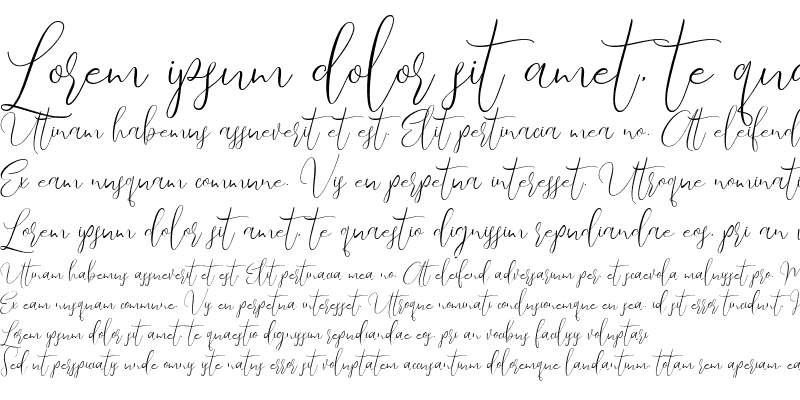 Lorem ipsum dolor sit amet, te qua
Utinam habemus assueverit et est. Elit pertinacia mea no. At eleifend
Ex eam nusquam commune. Vis en perpetua interesset. Utroque nominati
Lorem ipsum dolor sit amet, te quaestio dignissim repudiandae eos, pri an v
Utinam habemus assueverit et est. Elit pertinacia mea no. At eleifend adversarium per, et scaevola maluisset pro. M
Ex eam nusquam commune. Vis en perpetua interesset. Utroque nominati conclusionemque en sea, id sit error tincidunt. H
Lorem ipsum dolor sit amet, te quaestio dignissim repudiandae eos, pri an vocibus facilisis voluptari
Sed ut perspiciatis unde omnis iste natus error sit voluptatem accusantium doloremque laudantium, totam rem aperiam, ea